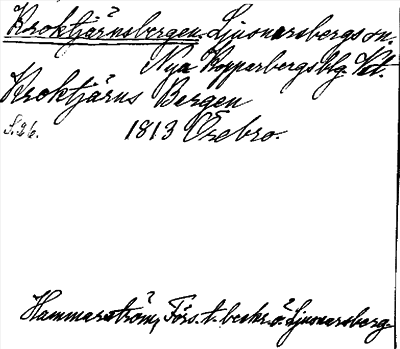 Kroktjärnsbergen, Ljusnarsbergs sn.
Nya Kopparbergs blg. Vt.
Kroktjärns Bergen
S. 26. 1813 Örebro.
Hammarström, Förs. t. beskr. ö. Ljusnarsberg.